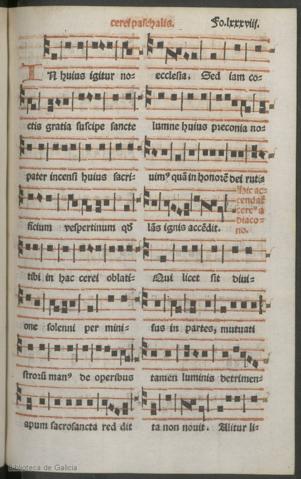 cerei paschalis. Fo.lxxxviij.
IN huius igitur no-
ctis gratia suscipe sancte
pater incensi huius sacri-
ficium vespertinum qđ
tibi in hac cerei oblati-
one solenni per mini-
strorū manꝰ de operibus
apum sacrosancta red dit
ecclesia. Sed iam co-
lumne huius preconia no-
uimꝰ quā in honorē dei ruti-
lās ignis accēdit.
Hic ac-
cendat
cereū a
diaco-
no.
Qui licet sit diui-
sus in partes, mutuati
tamen luminis detrimen-
ta non nouit. Alitur li-
Biblioteca de Galicia